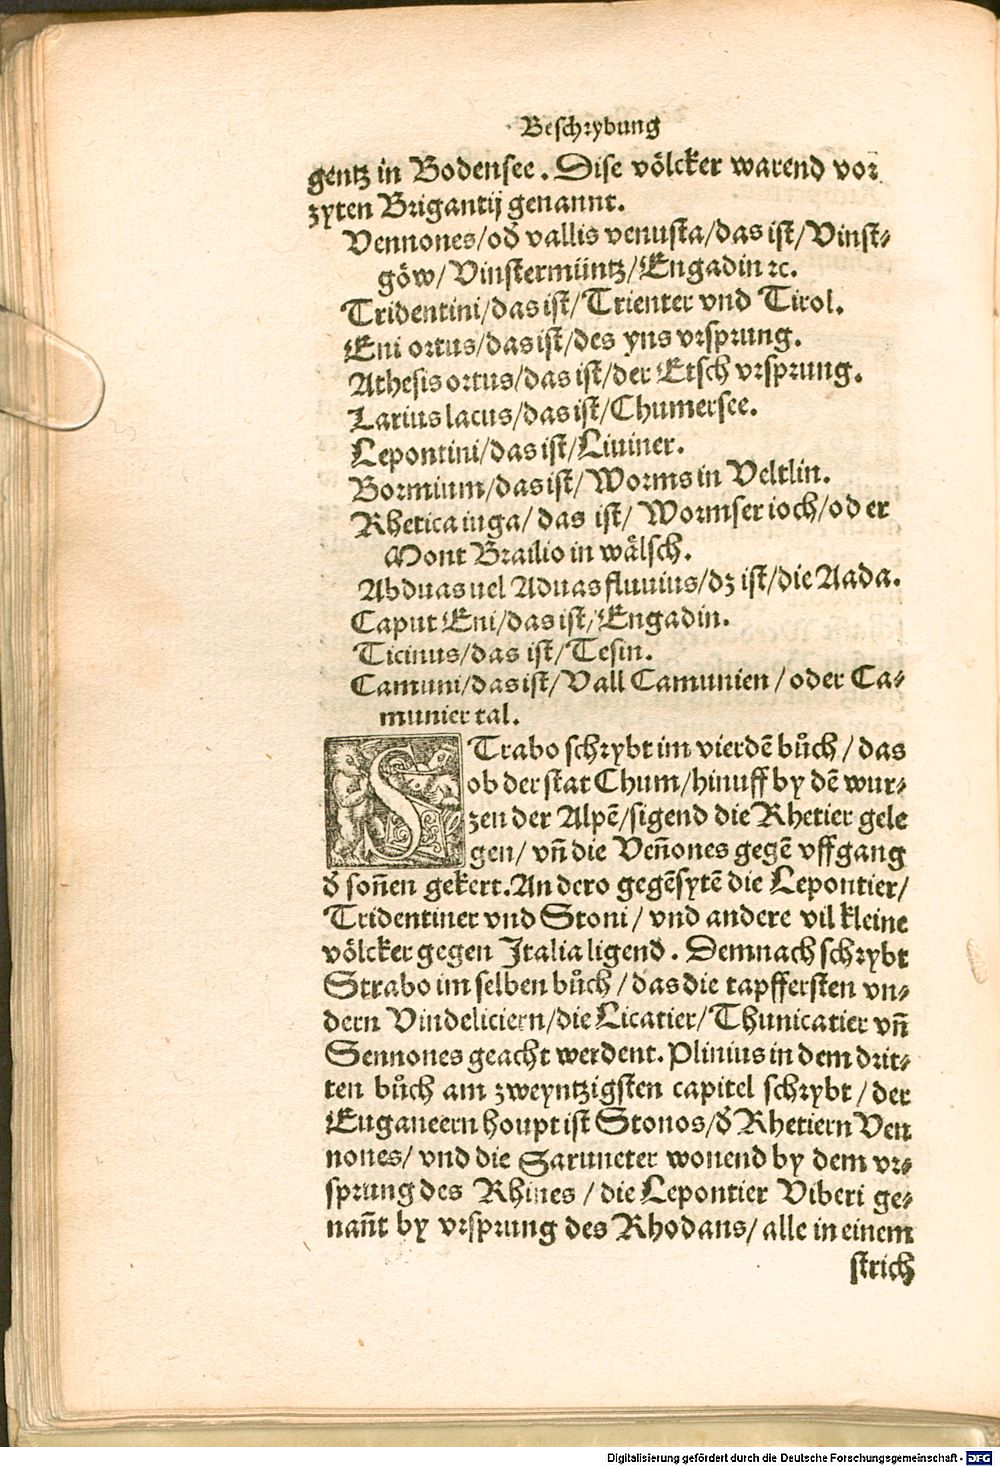 Beschrybung
gentz in Bodensee. Dise völcker warend vor
zyten Brigantij genannt.
Vennones/od̕ vallis venusta/das ist/Vinst⸗
göw/Vinstermüntz/Engadin ꝛc.
Tridentini/das ist/Trienter vnd Tirol.
Eni ortus/das ist/des yns vrsprung.
Athesis ortus/das ist/der Etsch vrsprung.
Larius lacus/das ist/Chumersee.
Lepontini/das ist/Liuiner.
Bormium/das ist/Worms in Veltlin.
Rhetica iuga/das ist/Wormser ioch/oder
Mont Brailio in wälsch.
Abduas uel Aduas fluuius/dz ist/die Aada.
Caput Eni/das ist/Engadin.
Ticinus/das ist/Tesin.
Camuni/das ist/Vall Camunien/oder Ca⸗
munier tal.
STrabo schrybt im vierdē bůch/das
ob der stat Chum/hinuff by dē wur⸗
zen der Alpē/sigend die Rhetier gele
gen/vñ die Veñones gegē vffgang
d̕ soñen gekert. An dero gegēsytē die Lepontier/
Tridentiner vnd Stoni/vnd andere vil kleine
völcker gegen Italia ligend. Demnach schrybt
Strabo im selben bůch/das die tapffersten vn⸗
dern Vindeliciern/die Licatier/Thunicatier vñ
Sennones geacht werdent. Plinius in dem drit⸗
ten bůch am zweyntzigsten capitel schrybt/der
Euganeern houpt ist Stonos/d̕ Rhetiern Ven
nones/vnd die Saruneter wonend by dem vr⸗
sprung des Rhines/die Lepontier Viberi ge⸗
nañt by vrsprung des Rhodans/alle in einem
strich
Digitalisierung gefördert durch die Deutsche Forschungsgemeinschaft - DFG